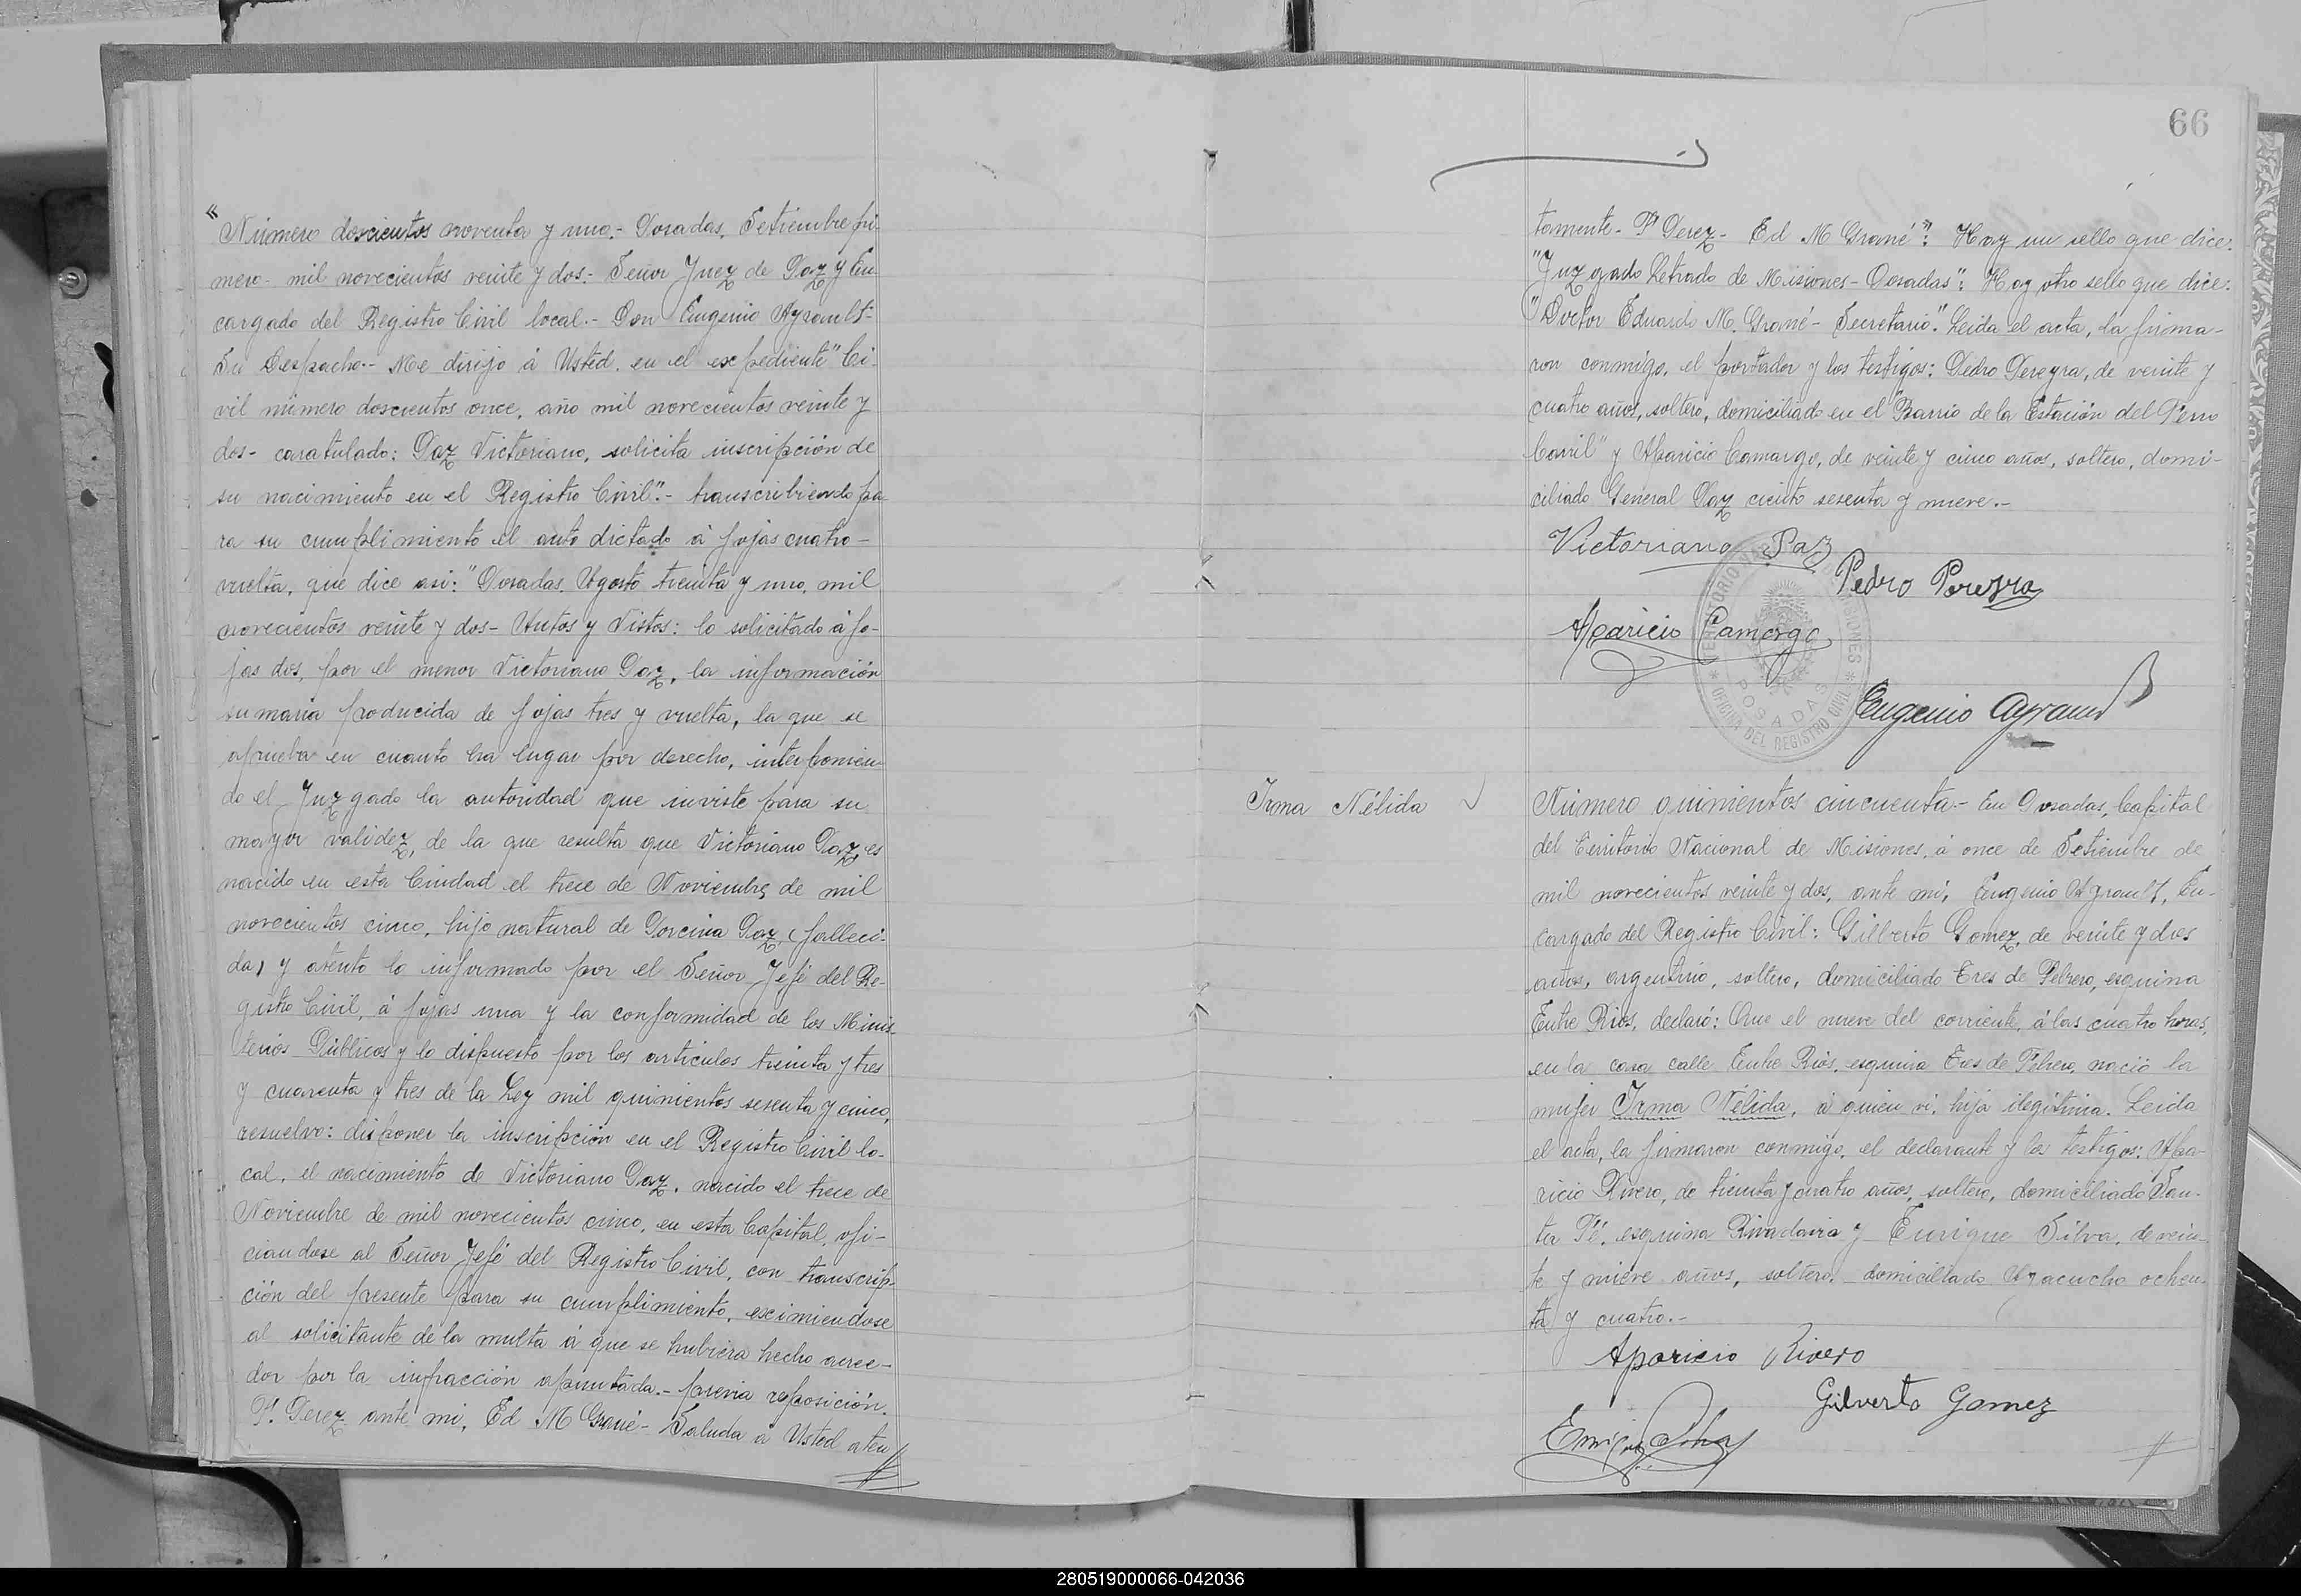 "Número doscientos noventa y uno.- Posadas, Setiembre pri-
mero- mil novecientos veinte y dos.- Señor Juez de Paz y En
cargado del Registro Civil local.- Don Eugenio Ayrault-
Su Despacho.- Me dirijo á Usted, en el expediente "Ci-
vil número doscientos once, año mil novecientos veinte y
dos- caratulado: Paz Victoriano, solicita inscripción de
su nacimiento en el Registro Civil".- transcribiendo pa-
ra su cumplimiento el auto dictado á fojas cuatro-
vuelta, que dice asi: "Posadas, Agosto treinta y uno, mil
novecientos veinte y dos- Autos y Vistos: lo solicitado á fo-
jas dos, por el menor Victoriano Paz, la información
sumaria producida de fojas tres y vuelta, la que se
aprueba en cuanto ha lugar por derecho, interponien-
do el Juzgado la autoridad que inviste para su
mayor validez, de la que resulta que Victoriano Paz, es
nacido en esta Ciudad el trece de Noviembre de mil
novecientos cinco, hijo natural de Porcina Paz, (falleci-
da) y atento lo informado por el Señor Jefe del Re-
gistro Civil, á fojas una y la conformidad de los Minis-
terios Públicos y lo dispuesto por los artículos treinta y tres
y cuarenta y tres de la Ley mil quinientos sesenta y cinco,
resuelvo: disponer la inscripción en el Registro Civil lo-
cal, el nacimiento de Victoriano Paz, nacido el trece de
Noviembre de mil novecientos cinco, en esta Capital, ofi-
ciandose al Señor Jefe del Registro Civil, con transcrip-
ción del presente para su cumplimiento, eximiendose
al solicitante de la multa á que se hubiera hecho acree-
dor por la infracción apuntada.- previa reposición.
P. Perez ante mi, Ed M Grané- Saluda á Usted aten
66
tamente- P Perez- Ed M Grané": Hay un sello que dice:
"Juzgado Letrado de Misiones- Posadas": Hay otro sello que dice:
"Doctor Eduardo M. Grané- Secretario." Leida el acta, la firma-
ron conmigo, el portador y los testigos: Pedro Pereyra, de veinte y
cuatro años, soltero, domiciliado en el "Barrio de la Estación del Ferro
Carril" y Aparicio Camargo, de veinte y cinco años, soltero, domi-
ciliado General Paz ciento sesenta y nueve.-
Victoriano Paz
Pedro Pereyra
Aparicio Camargo
OFICINA DEL REGISTRO CIVIL
POSADAS
Eugenio Ayrault
Irma Nélida
Número quinientos cincuenta.- En Posadas, Capital
del Territorio Nacional de Misiones, á once de Setiembre de
mil novecientos veinte y dos, ante mi, Eugenio Ayrault, En-
cargado del Registro Civil: Gilberto Gomez, de veinte y dos
años, argentino, soltero, domiciliado Tres de Febrero, esquina
Entre Rios, declaró: Que el nueve del corriente, á las cuatro horas,
en la casa calle Entre Rios, esquina Tres de Febrero, nació la
mujer Irma Nélida, á quien vi, hija ilegitima. Leida
el acta, la firmaron conmigo, el declarante y los testigos: Apa-
ricio Rivero, de treinta y cuatro años, soltero, domiciliado San-
ta Fé, esquina Rivadavia y Enrique Silva, de vein-
te y nueve años, soltero, domiciliado Ayacucho ochen-
ta y cuatro.-
Aparicio Rivero
Gilverto Gomez
Enrique Silva
280519000066-042036